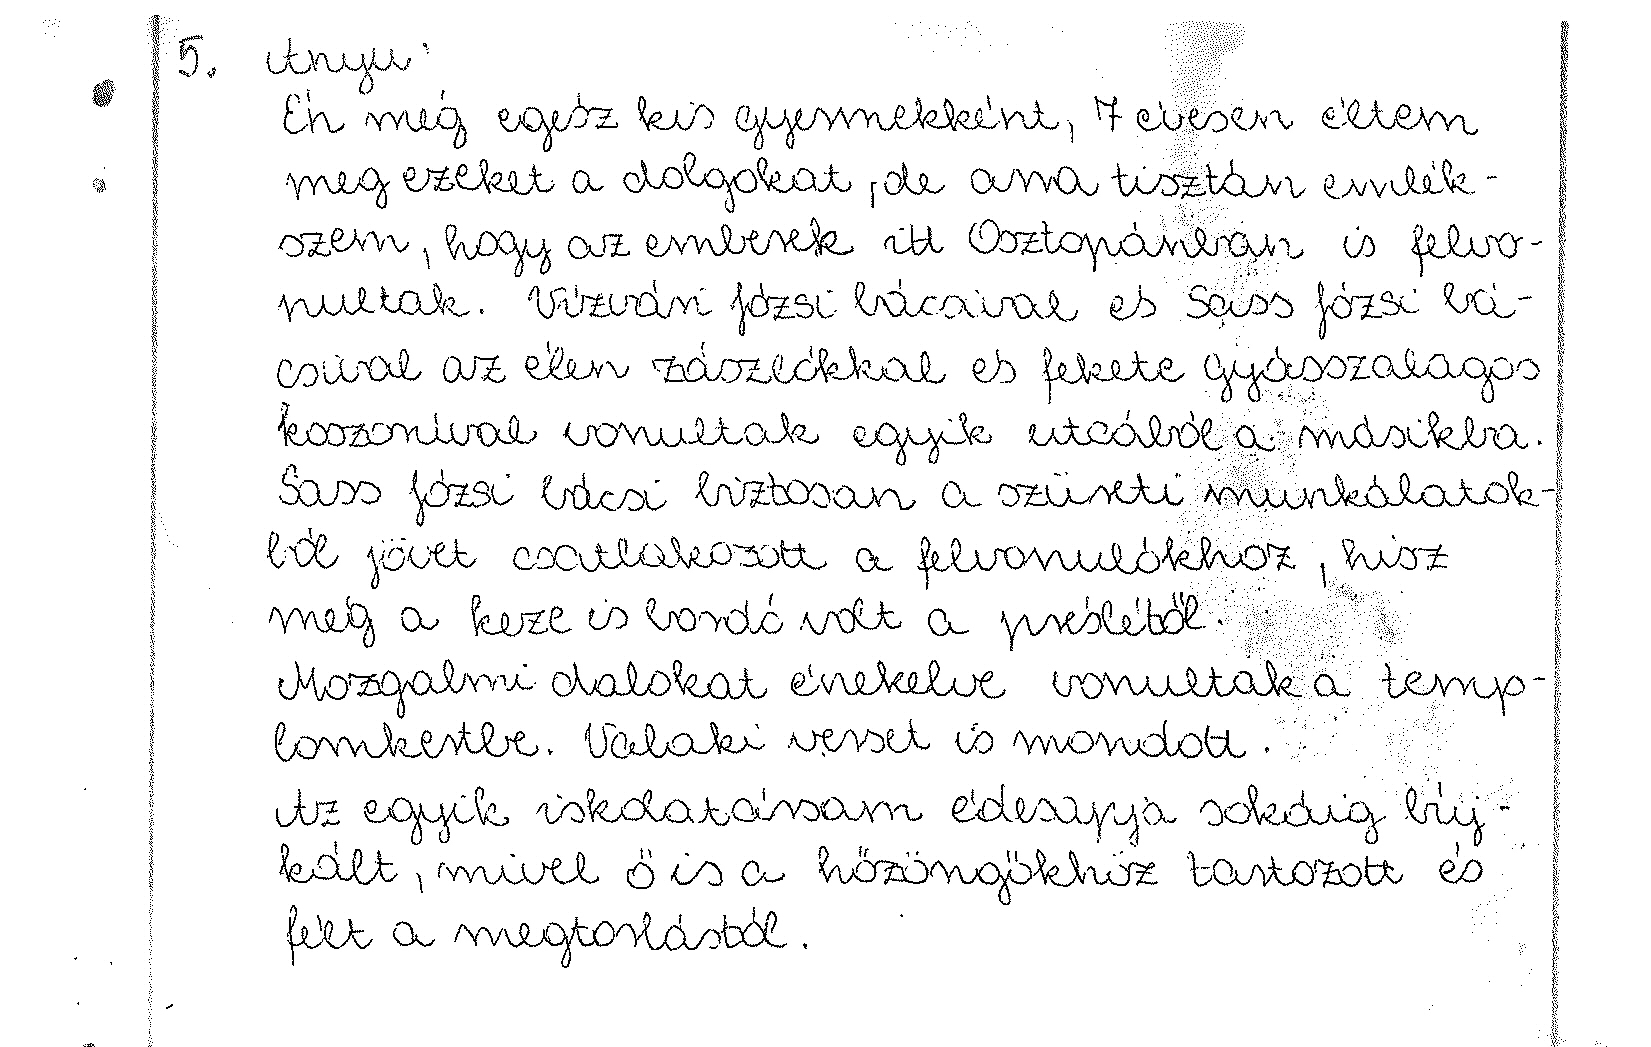 5. Anyu:
Én még egész kis gyermekként, 7 évesen éltem
meg ezeket a dolgokat, de arra tisztán emlék-
szem, hogy az emberek itt Osztopánban is felvo-
nultak. Vízvári Józsi bácsival és Sass Józsi bá-
csival az élen zászlókkal és fekete gyászszalagos
koszorúval vonultak egyik utcából a másikba.
Sass Józsi bácsi biztosan a szüreti munkálatok-
ból jövet csatlakozott a felvonulókhoz, hisz
még a keze is bordó volt a préslétől.
Mozgalmi dalokat énekelve vonultak a temp-
lomkertbe. Valaki verset is mondott.
Az egyik iskolatársam édesapja sokáig búj-
kált, mivel ő is a hőzöngőkhöz tartozott és
félt a megtorlástól.